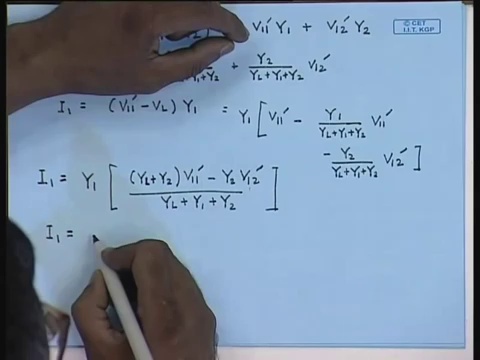 V₁₁′ Y₁ + V₁₂′ Y₂
© CET
I.I.T. KGP
Y₁+Y₂ + Y₂/(Y_L+Y₁+Y₂) V₁₂′
I₁ = (V₁₁′ − V_L) Y₁ = Y₁ [ V₁₁′ − Y₁/(Y_L+Y₁+Y₂) V₁₁′
− Y₂/(Y_L+Y₁+Y₂) V₁₂′ ]
I₁ = Y₁ [ ((Y_L+Y₂) V₁₁′ − Y₂ V₁₂′)/(Y_L + Y₁ + Y₂) ]
I₁ =